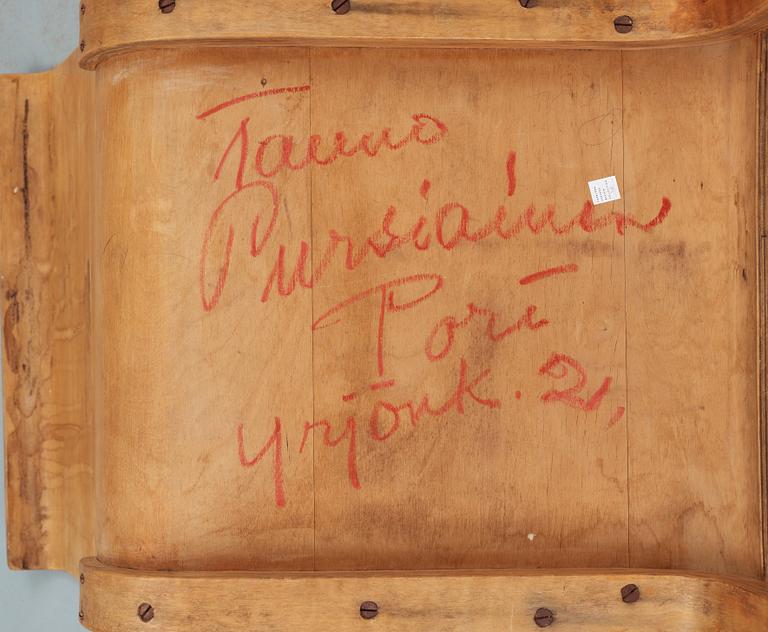 Tauno
Pursiainen
Pori
Yrjönk. 21,